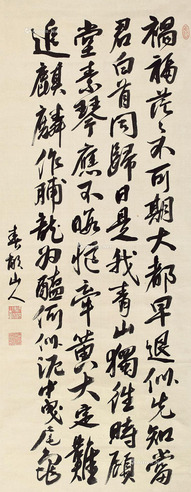 禍福茫々不可期大都早退似先知當
君白首同歸日是我青山獨往時顧
索素琴應不暇憶牽黃犬定難
追麒麟作脯龍為醢何似泥中曳尾龜
春畝山人